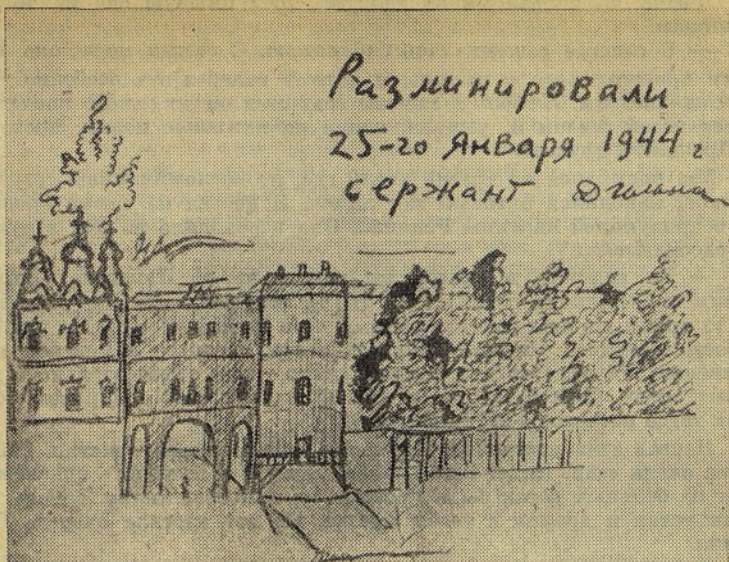 Разминировали
25-го января 1944 г
сержант